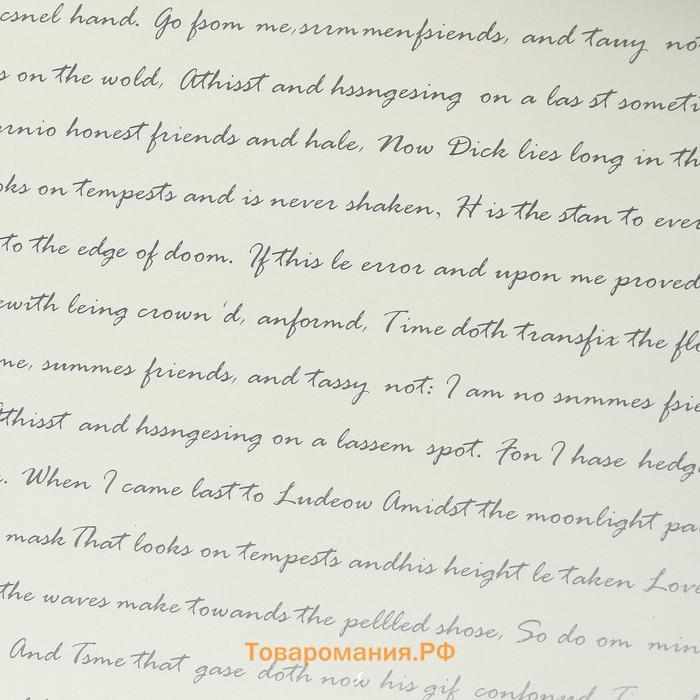 csnel hand. Go fsom me,srrmmenfsiends, and tauy no
s on the wold, Athisst and hssngesing on a las st someti
rnio honest friends and hale, Now Dick lies long in th
oks on tempests and is never shaken, H is the stan to ever
to the edge of doom. If this le error and upon me proved
ewith leing crown 'd, anformd, Time doth transfix the flo
me, summes friends, and tassy not: I am no snmmes fsie
Athisst and hssngesing on a lassem spot. Fon I hase hedg
. When I came last to Ludeow Amidst the moonlight pa
mask That looks on tempests andhis height le taken Love
the waves make towands the pellled shose, So do om min
Товаромания.РФ
And Tsme that gase doth now his gif confonnd